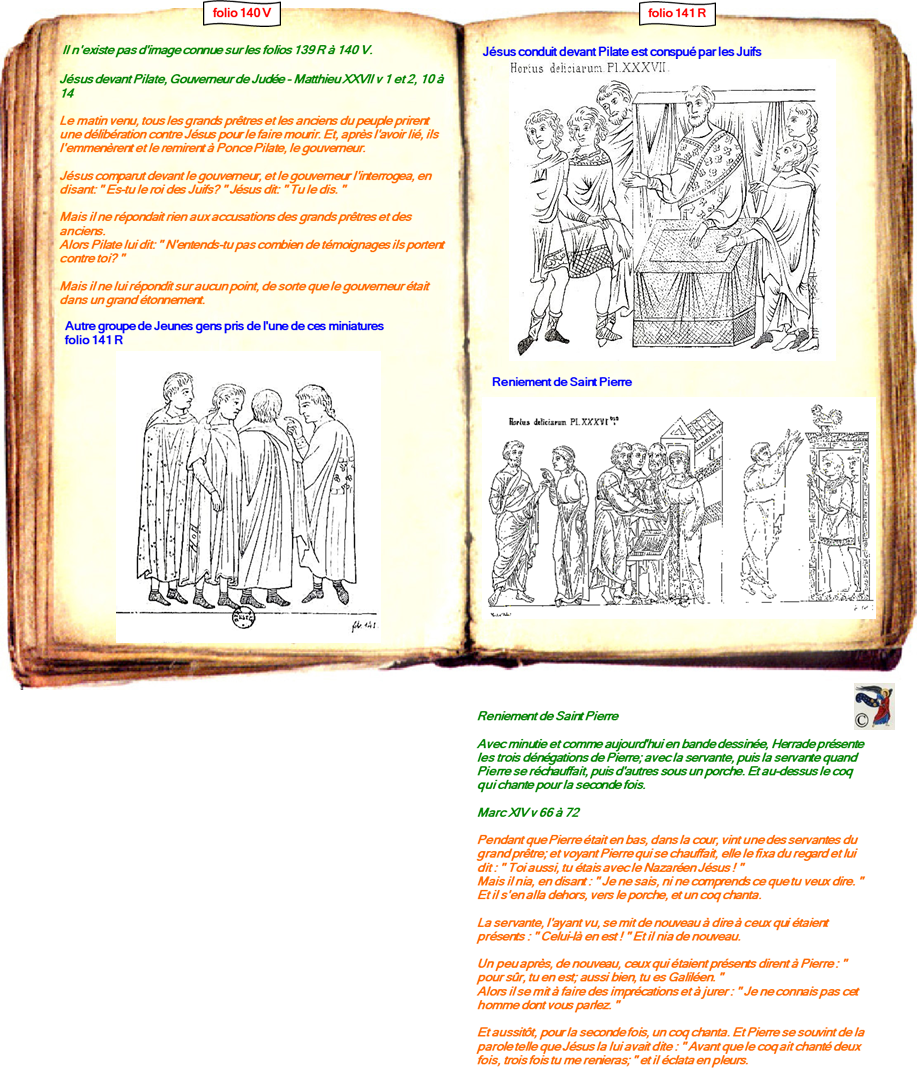 folio 140 V
Il n'existe pas d'image connue sur les folios 139 R à 140 V.
Jésus devant Pilate, Gouverneur de Judée - Matthieu XXVII v 1 et 2, 10 à
14
Le matin venu, tous les grands prêtres et les anciens du peuple prirent
une délibération contre Jésus pour le faire mourir. Et, après l'avoir lié, ils
l'emmenèrent et le remirent à Ponce Pilate, le gouverneur.
Jésus comparut devant le gouverneur, et le gouverneur l'interrogea, en
disant: " Es-tu le roi des Juifs? " Jésus dit: " Tu le dis. "
Mais il ne répondait rien aux accusations des grands prêtres et des
anciens.
Alors Pilate lui dit: " N'entends-tu pas combien de témoignages ils portent
contre toi? "
Mais il ne lui répondit sur aucun point, de sorte que le gouverneur était
dans un grand étonnement.
Autre groupe de Jeunes gens pris de l'une de ces miniatures
folio 141 R
folio 141 R
Jésus conduit devant Pilate est conspué par les Juifs
Hortus deliciarum. Pl. XXXVII.
Reniement de Saint Pierre
Hortus deliciarum Pl. XXXVI
©
Reniement de Saint Pierre
Avec minutie et comme aujourd'hui en bande dessinée, Herrade présente
les trois dénégations de Pierre; avec la servante, puis la servante quand
Pierre se réchauffait, puis d'autres sous un porche. Et au-dessus le coq
qui chante pour la seconde fois.
Marc XIV v 66 à 72
Pendant que Pierre était en bas, dans la cour, vint une des servantes du
grand prêtre; et voyant Pierre qui se chauffait, elle le fixa du regard et lui
dit : " Toi aussi, tu étais avec le Nazaréen Jésus ! "
Mais il nia, en disant : " Je ne sais, ni ne comprends ce que tu veux dire. "
Et il s'en alla dehors, vers le porche, et un coq chanta.
La servante, l'ayant vu, se mit de nouveau à dire à ceux qui étaient
présents : " Celui-là en est ! " Et il nia de nouveau.
Un peu après, de nouveau, ceux qui étaient présents dirent à Pierre : "
pour sûr, tu en est; aussi bien, tu es Galiléen. "
Alors il se mit à faire des imprécations et à jurer : " Je ne connais pas cet
homme dont vous parlez. "
Et aussitôt, pour la seconde fois, un coq chanta. Et Pierre se souvint de la
parole telle que Jésus la lui avait dite : " Avant que le coq ait chanté deux
fois, trois fois tu me renieras; " et il éclata en pleurs.